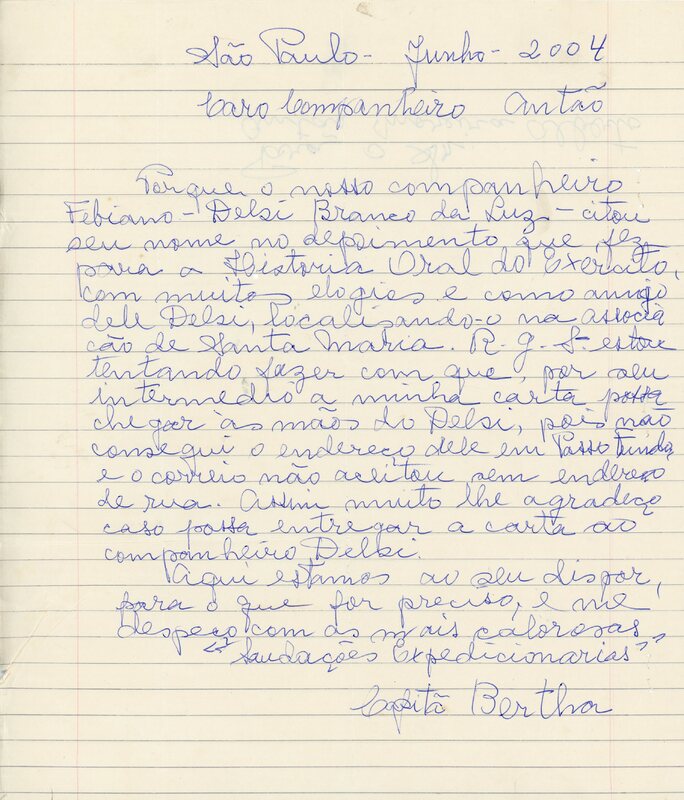 São Paulo - Junho - 2004
Caro Companheiro Antão
Porque o nosso companheiro
Febiano - Delsi Branco da Luz - citou
seu nome no depoimento que fez
para a Historia Oral do Exercito,
com muitos elogios e como amigo
dele Delsi, localizando-o na associa
ção de Santa Maria. R.G.S. estou
tentando fazer com que, por seu
intermedio a minha carta possa
chegar às mãos do Delsi, pois não
consegui o endereço dele em Passo Fundo,
e o correio não aceitou sem endereço
de rua. Assim muito lhe agradeço
caso possa entregar a carta ao
companheiro Delsi.
Aqui estamos ao seu dispor,
para o que for preciso, e me
despeço com as mais calorosas
"Saudações Expedicionarias"
Capitã Bertha